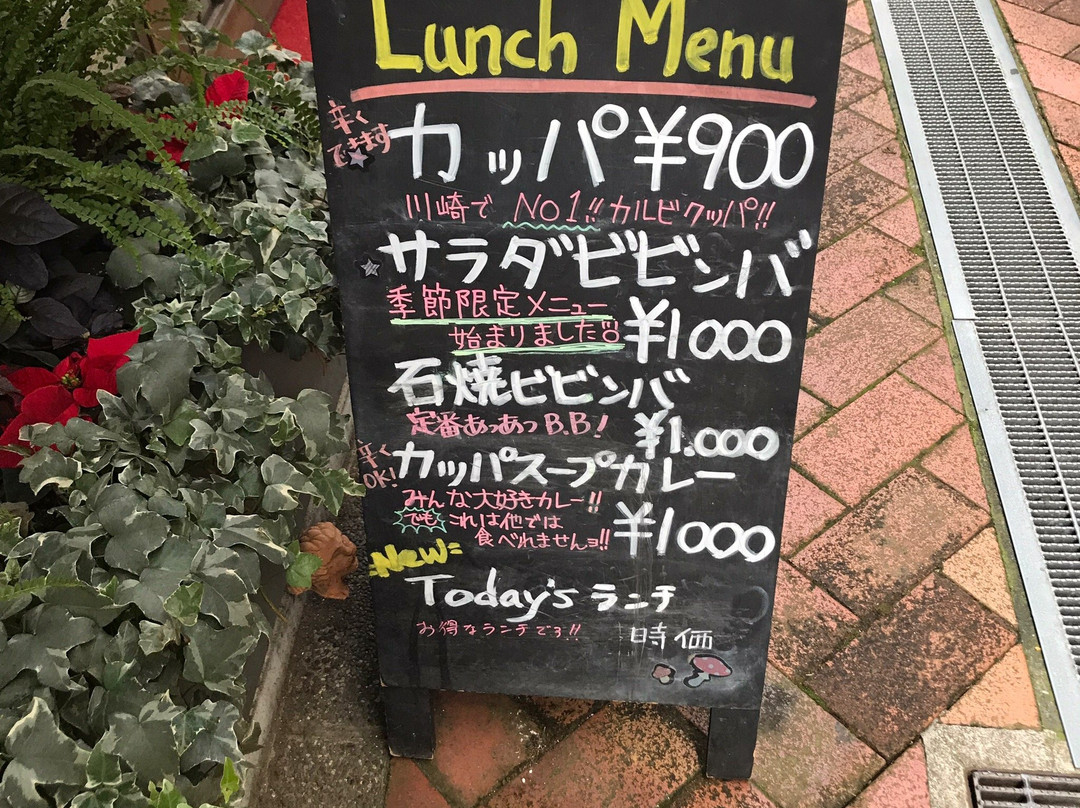 Lunch Menu
辛く
できます
カッパ ¥900
川崎で NO1!! カルビクッパ!!
サラダビビンバ
季節限定メニュー
始まりました
¥1000
石焼ビビンバ
定番あっあつ B.B!
¥1.000
辛く
OK!
カッパスープカレー
みんな大好きカレー!!
でも これは他では
食べれませんョ!!
¥1000
New
Today's ランチ
お得なランチです!!
時価